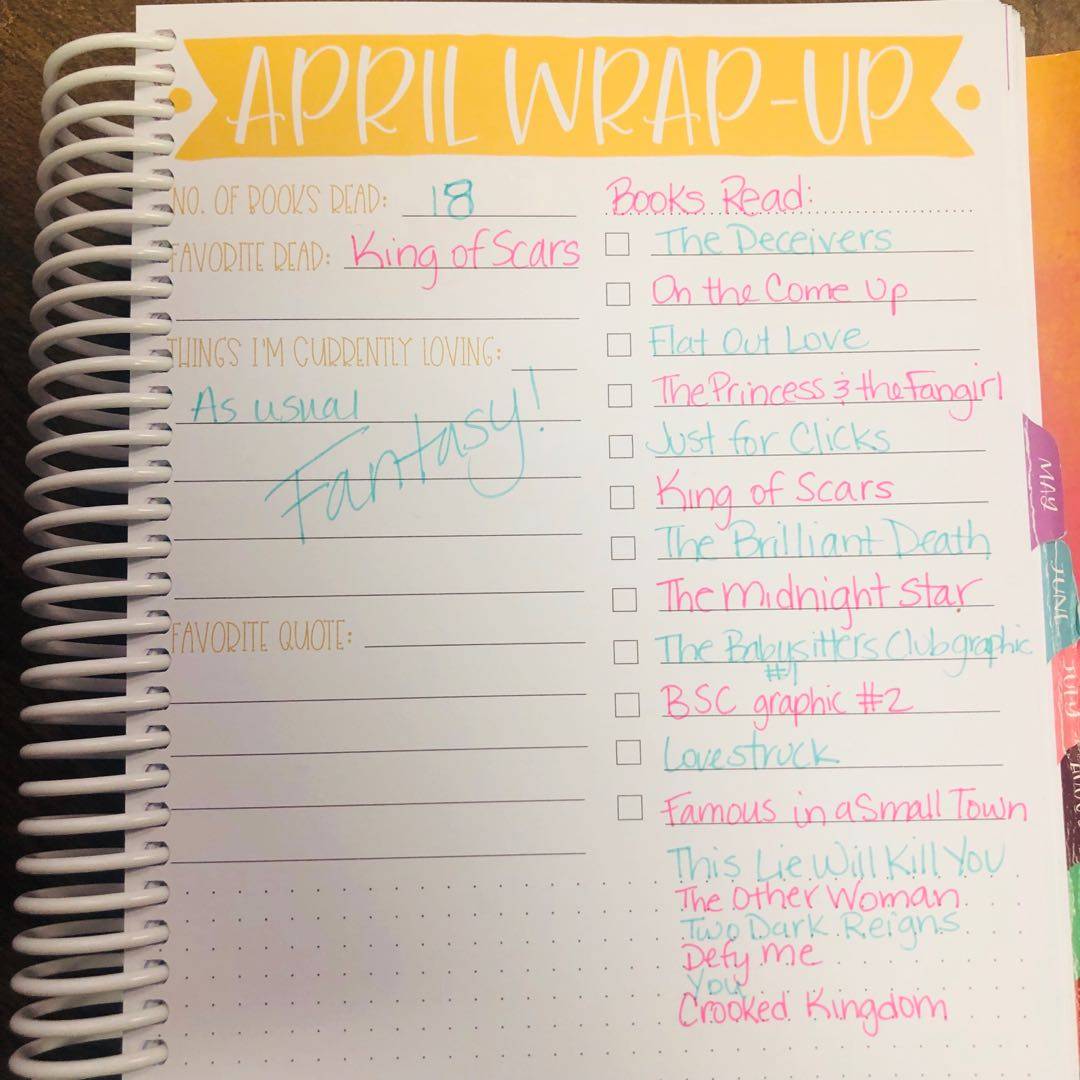 APRIL WRAP-UP
NO. OF BOOKS READ: 18
FAVORITE READ: King of Scars
THINGS I'M CURRENTLY LOVING:
As usual
Fantasy!
FAVORITE QUOTE:
Books Read:
The Deceivers
On the Come Up
Flat Out Love
The Princess & the Fangirl
Just for Clicks
King of Scars
The Brilliant Death
The Midnight Star
The Babysitters Club graphic
#1
BSC graphic #2
Lovestruck
Famous in a Small Town
This Lie Will Kill You
The Other Woman
Two Dark Reigns
Defy me
You
Crooked Kingdom
MAY
JUNE
JULY